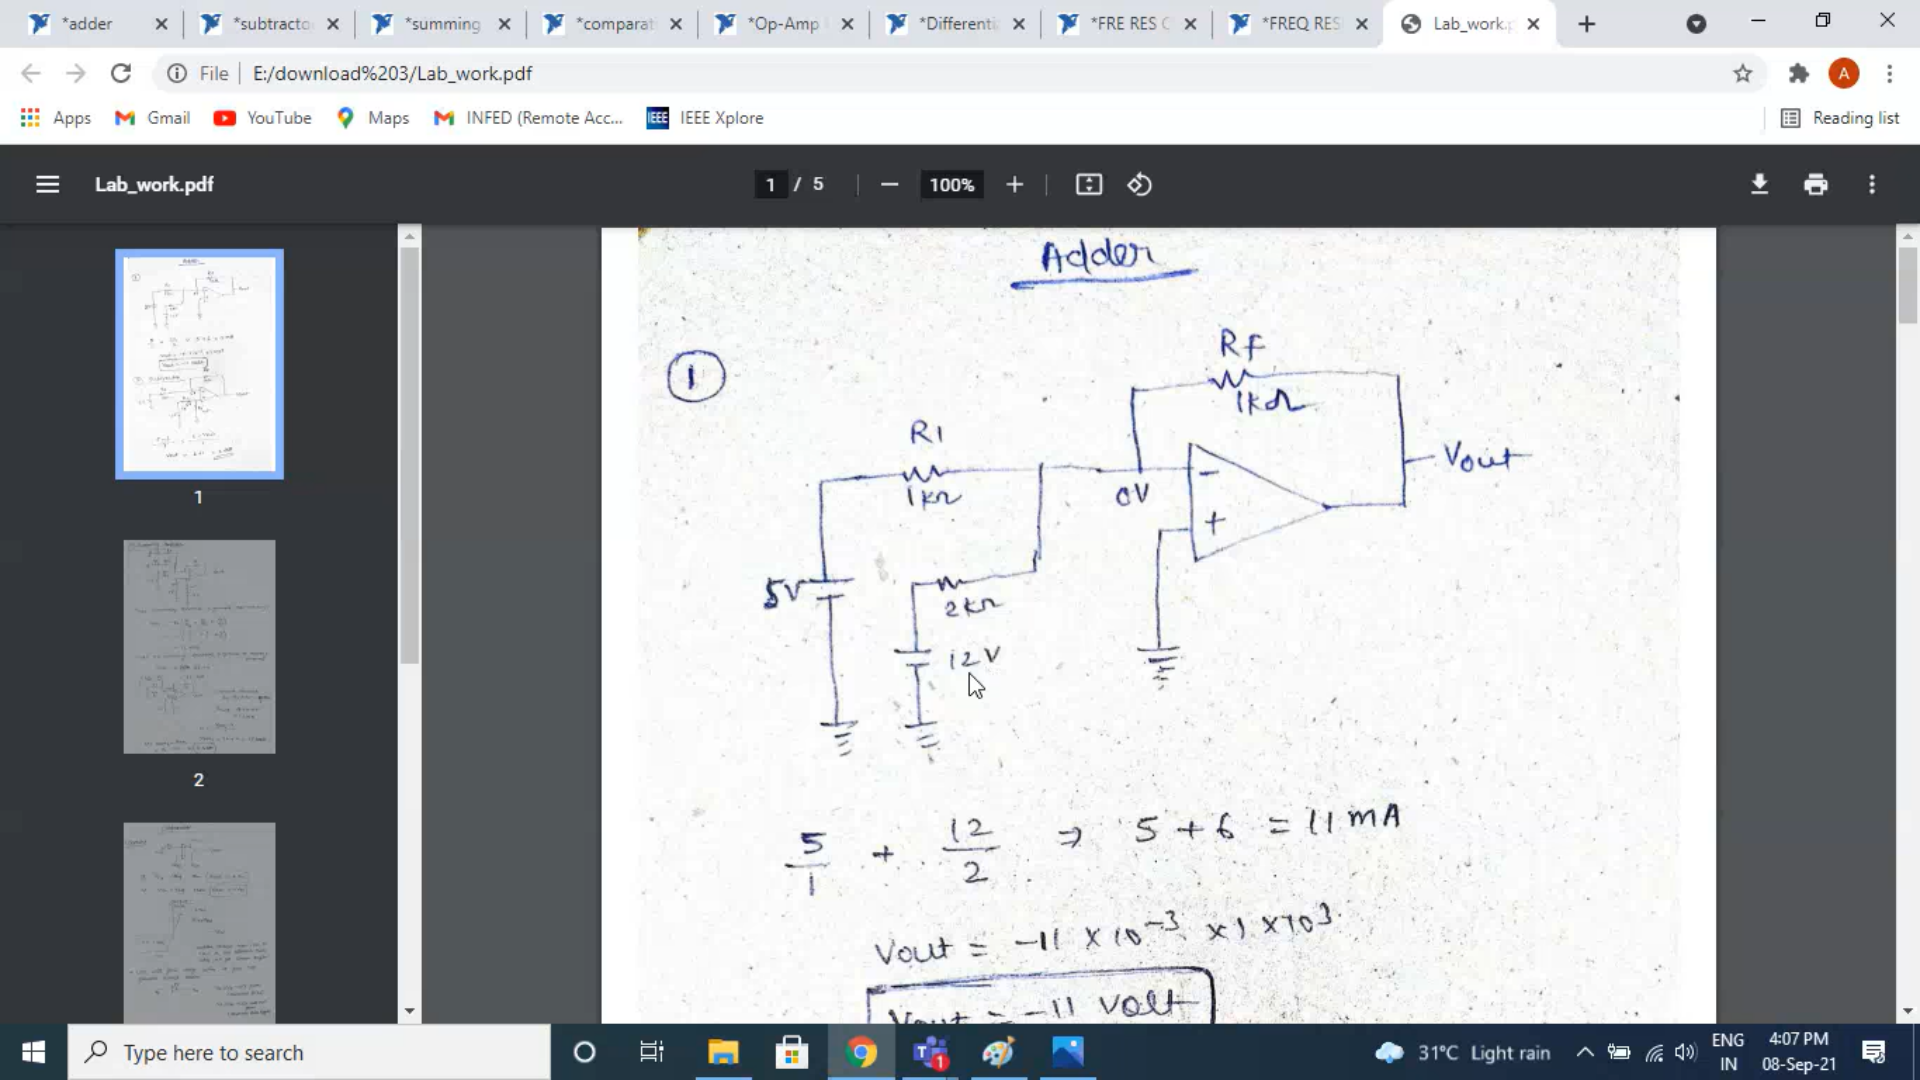 *adder
*subtracto
*summing
*comparat
*Op-Amp
*Differenti
*FRE RES C
*FREQ RES
Lab_work.p
File E:/download%203/Lab_work.pdf
A
Apps Gmail YouTube Maps INFED (Remote Acc... IEEE IEEE Xplore Reading list
Lab_work.pdf 1 / 5 100%
Adder
1
RF
1kΩ
R1
1kΩ
0V
-
+
Vout
5V
2kΩ
12V
5/1 + 12/2 ⇒ 5 + 6 = 11 mA
Vout = -11 × 10⁻³ × 1 × 10³
Vout = -11 Volt
1
2
Type here to search
1
31°C Light rain
ENG
IN
4:07 PM
08-Sep-21